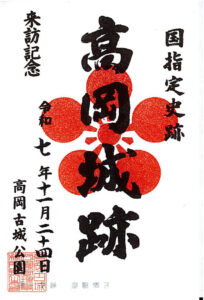 国指定史跡
高岡城跡
来訪記念
令和七年十一月二十四日
高岡古城公園